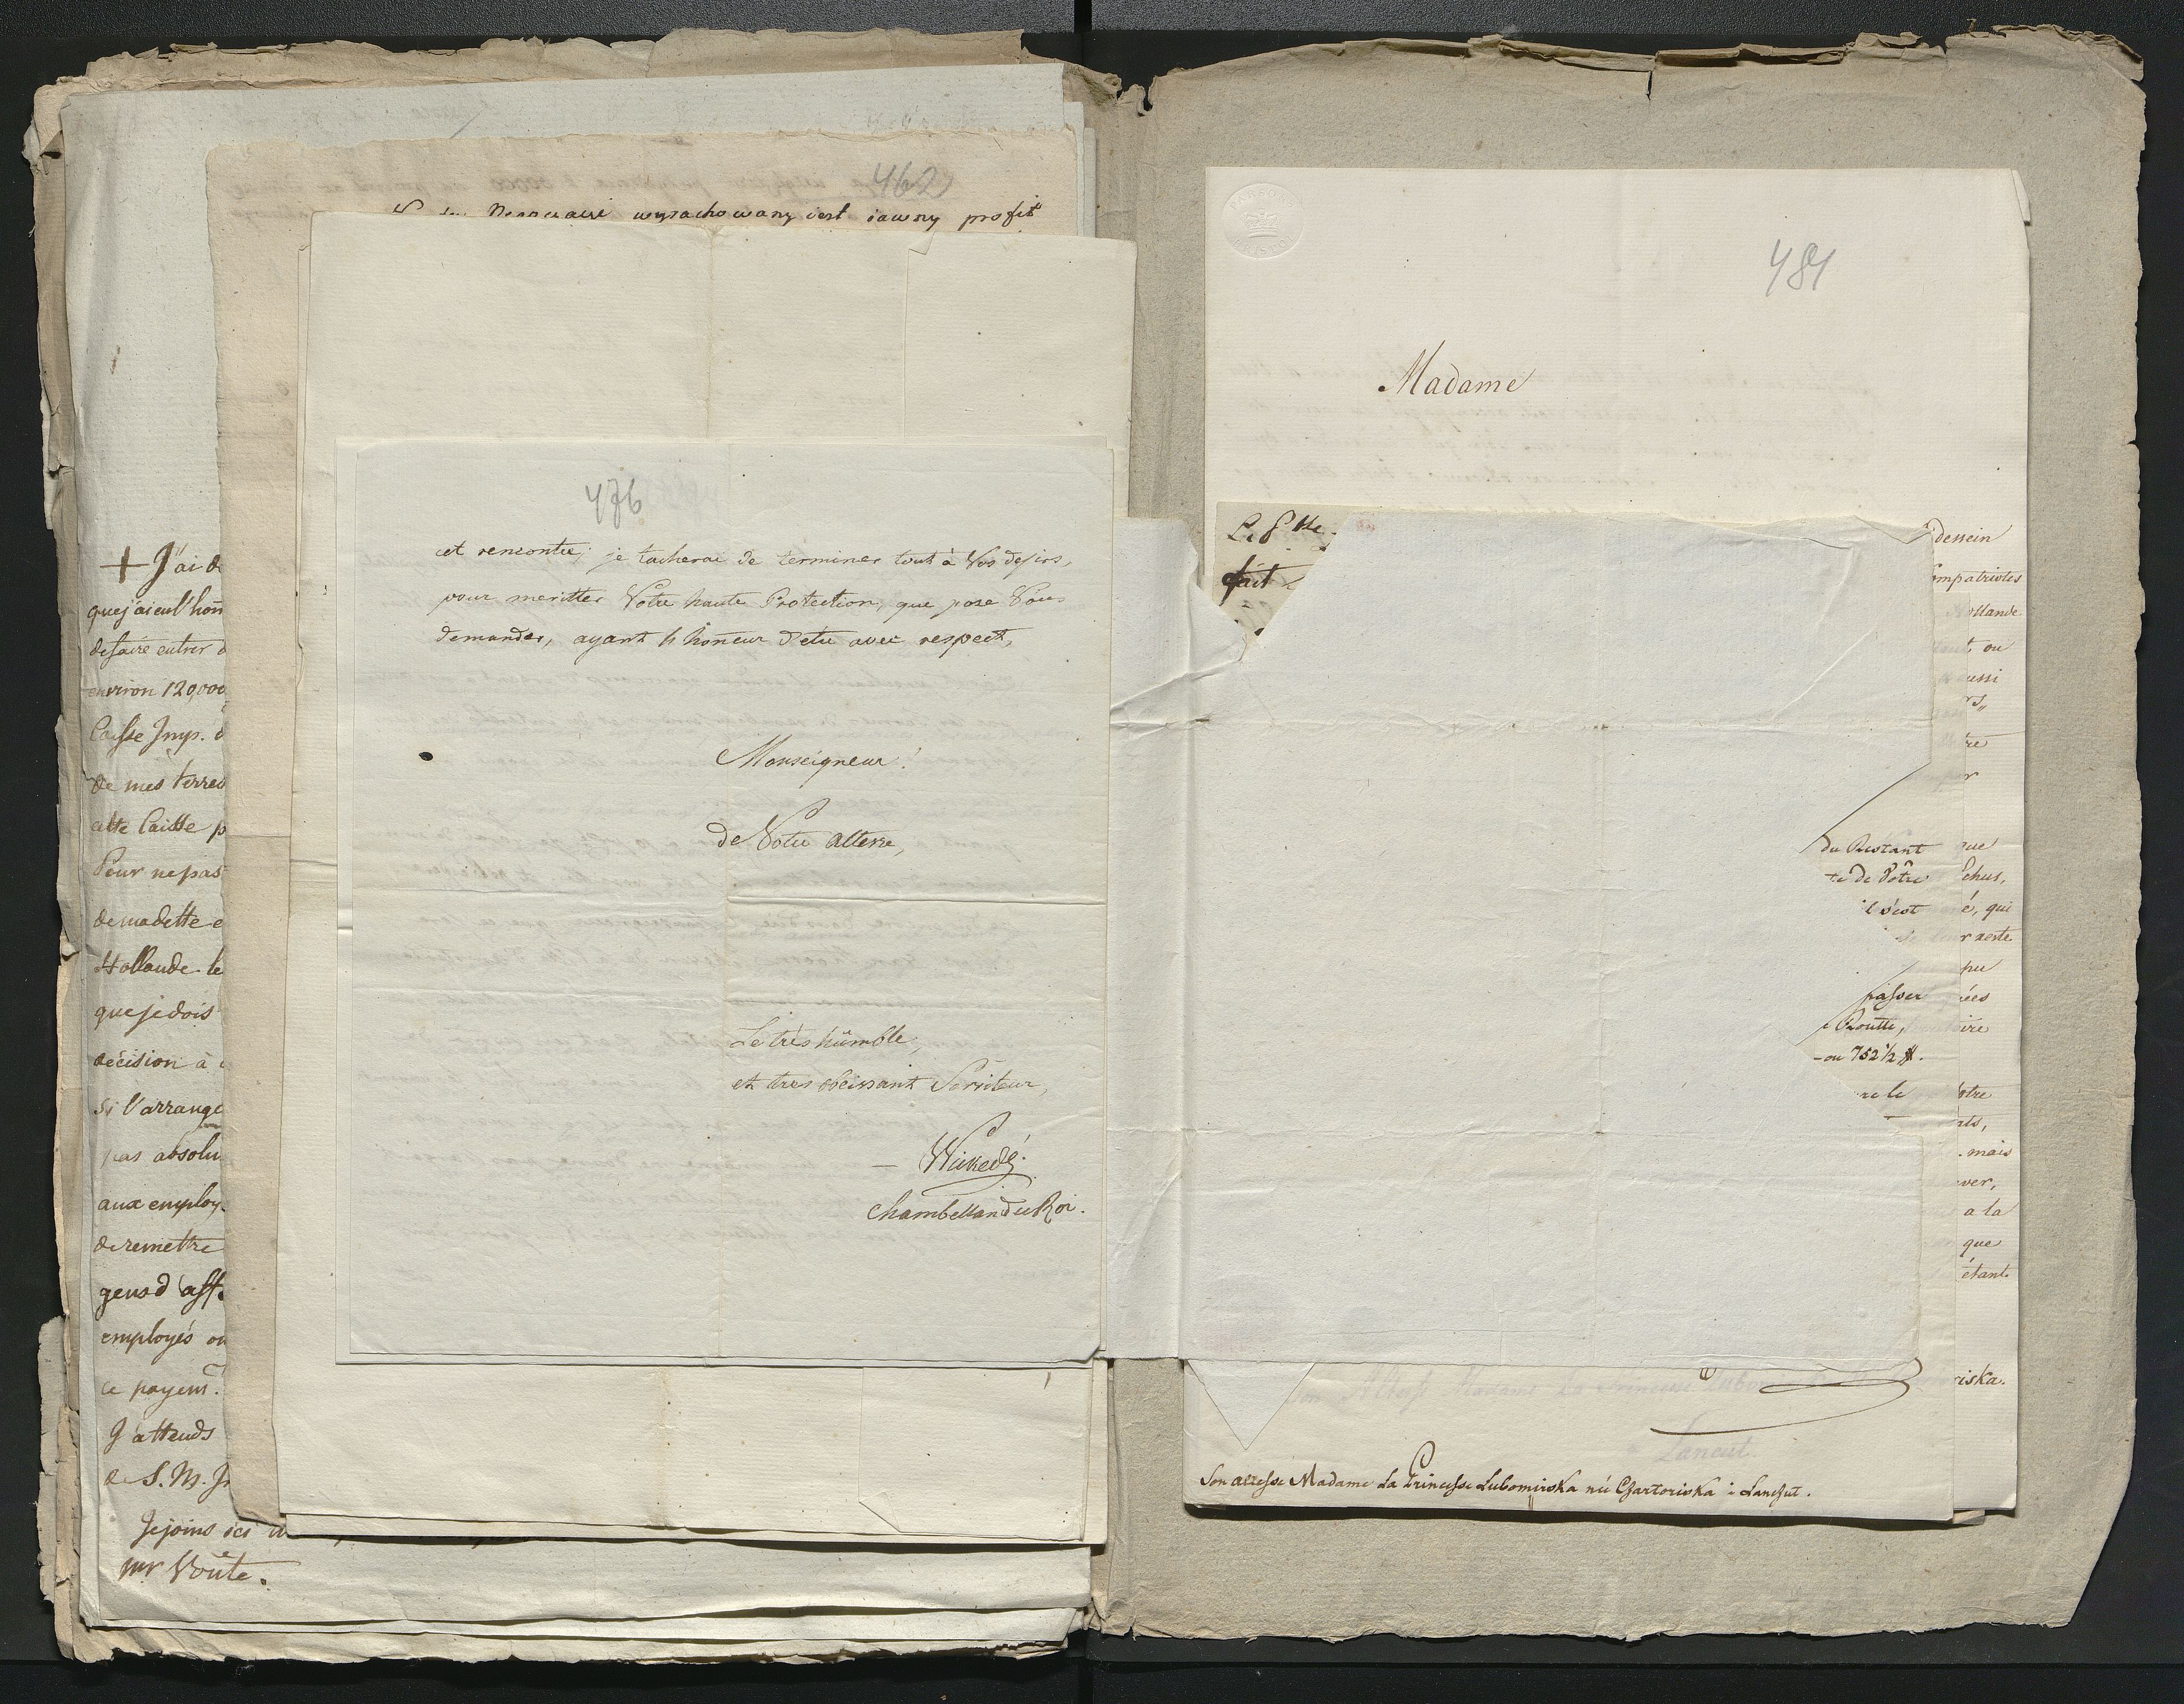 462
wyrachowany iest iawny profit
+ J'ai
que j'ai eu l'hon
de faire entrer d
environ 120,000
Caisse Imp. d
de mes terres
cette Caisse p
Pour ne pas
de ma dette e
Hollande le
que je dois
décision à
si l'arrange
pas absolu
aux employ
de remettre
gens d'aff.
employés ou
ce payem.t
J'attends
de S. M. I
Je joins ici
mr Voûte.
476
cet rencontre; je tacherai de terminer tout à Vos desirs,
pour meritter Votre haute Protection, que j'ose Vous
demander, ayant l'honneur d'etre avec respect,
Monseigneur!
de Votre Altesse,
Le très humble,
et tres obeissant Serviteur,
Chambellan du Roi.
484
Madame
fait
dessein
ompatriotes
ollande
ou
ussi
du Restant
te de Vôtre
il s'est
passer
Routte,
ou 752 1/2 #.
re le
que
Echus,
é, qui
r reste
pu
ées
oire
ôtre
mais
ver,
a la
que
étant
riska.
Son Altesse Madame La Princesse Lubom
Lancut
Son Altesse Madame La Princesse Lubomirska née Czartoriska à Lanczut.